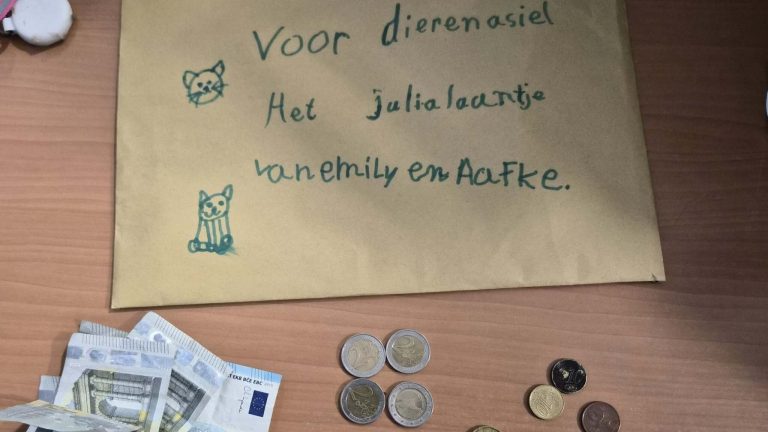 Voor dierenasiel
Het julialaantje
van emily en Aafke.
EKB BCE EBC